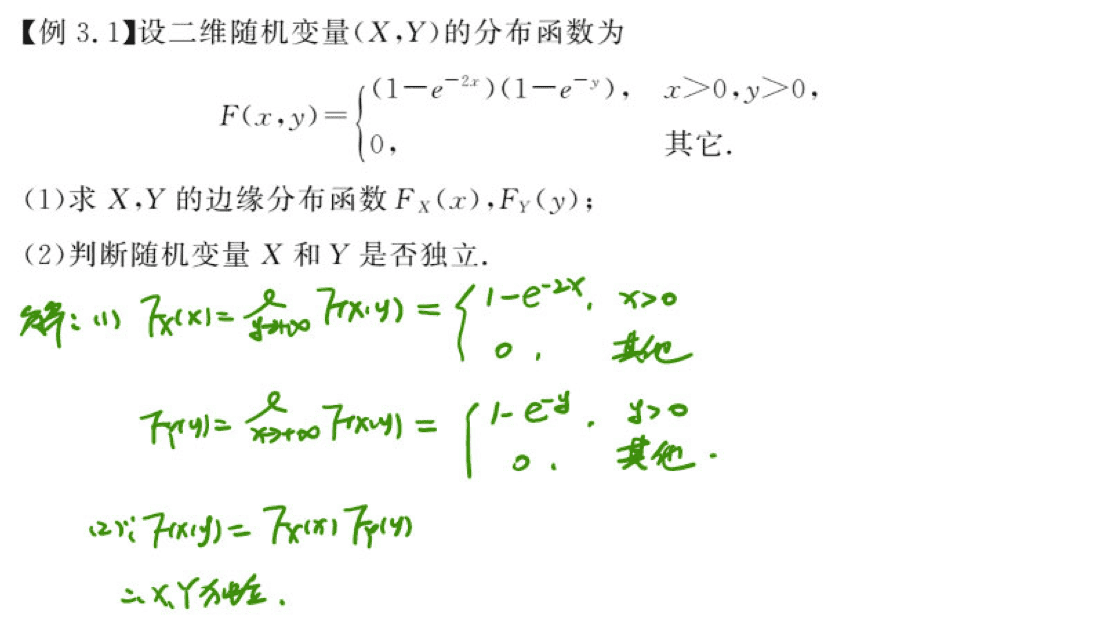 【例 3.1】设二维随机变量(X,Y)的分布函数为
F(x,y)={(1-e^{-2x})(1-e^{-y}), x>0,y>0,
0, 其它.
(1)求 X,Y 的边缘分布函数 F_X(x),F_Y(y);
(2)判断随机变量 X 和 Y 是否独立.
解:(1) F_X(x)=l_{y→+∞} F(x,y)={1-e^{-2x}, x>0
0, 其他
F_Y(y)=l_{x→+∞} F(x,y)={1-e^{-y}, y>0
0, 其他.
(2)∵F(x,y)=F_X(x)F_Y(y)
∴X,Y